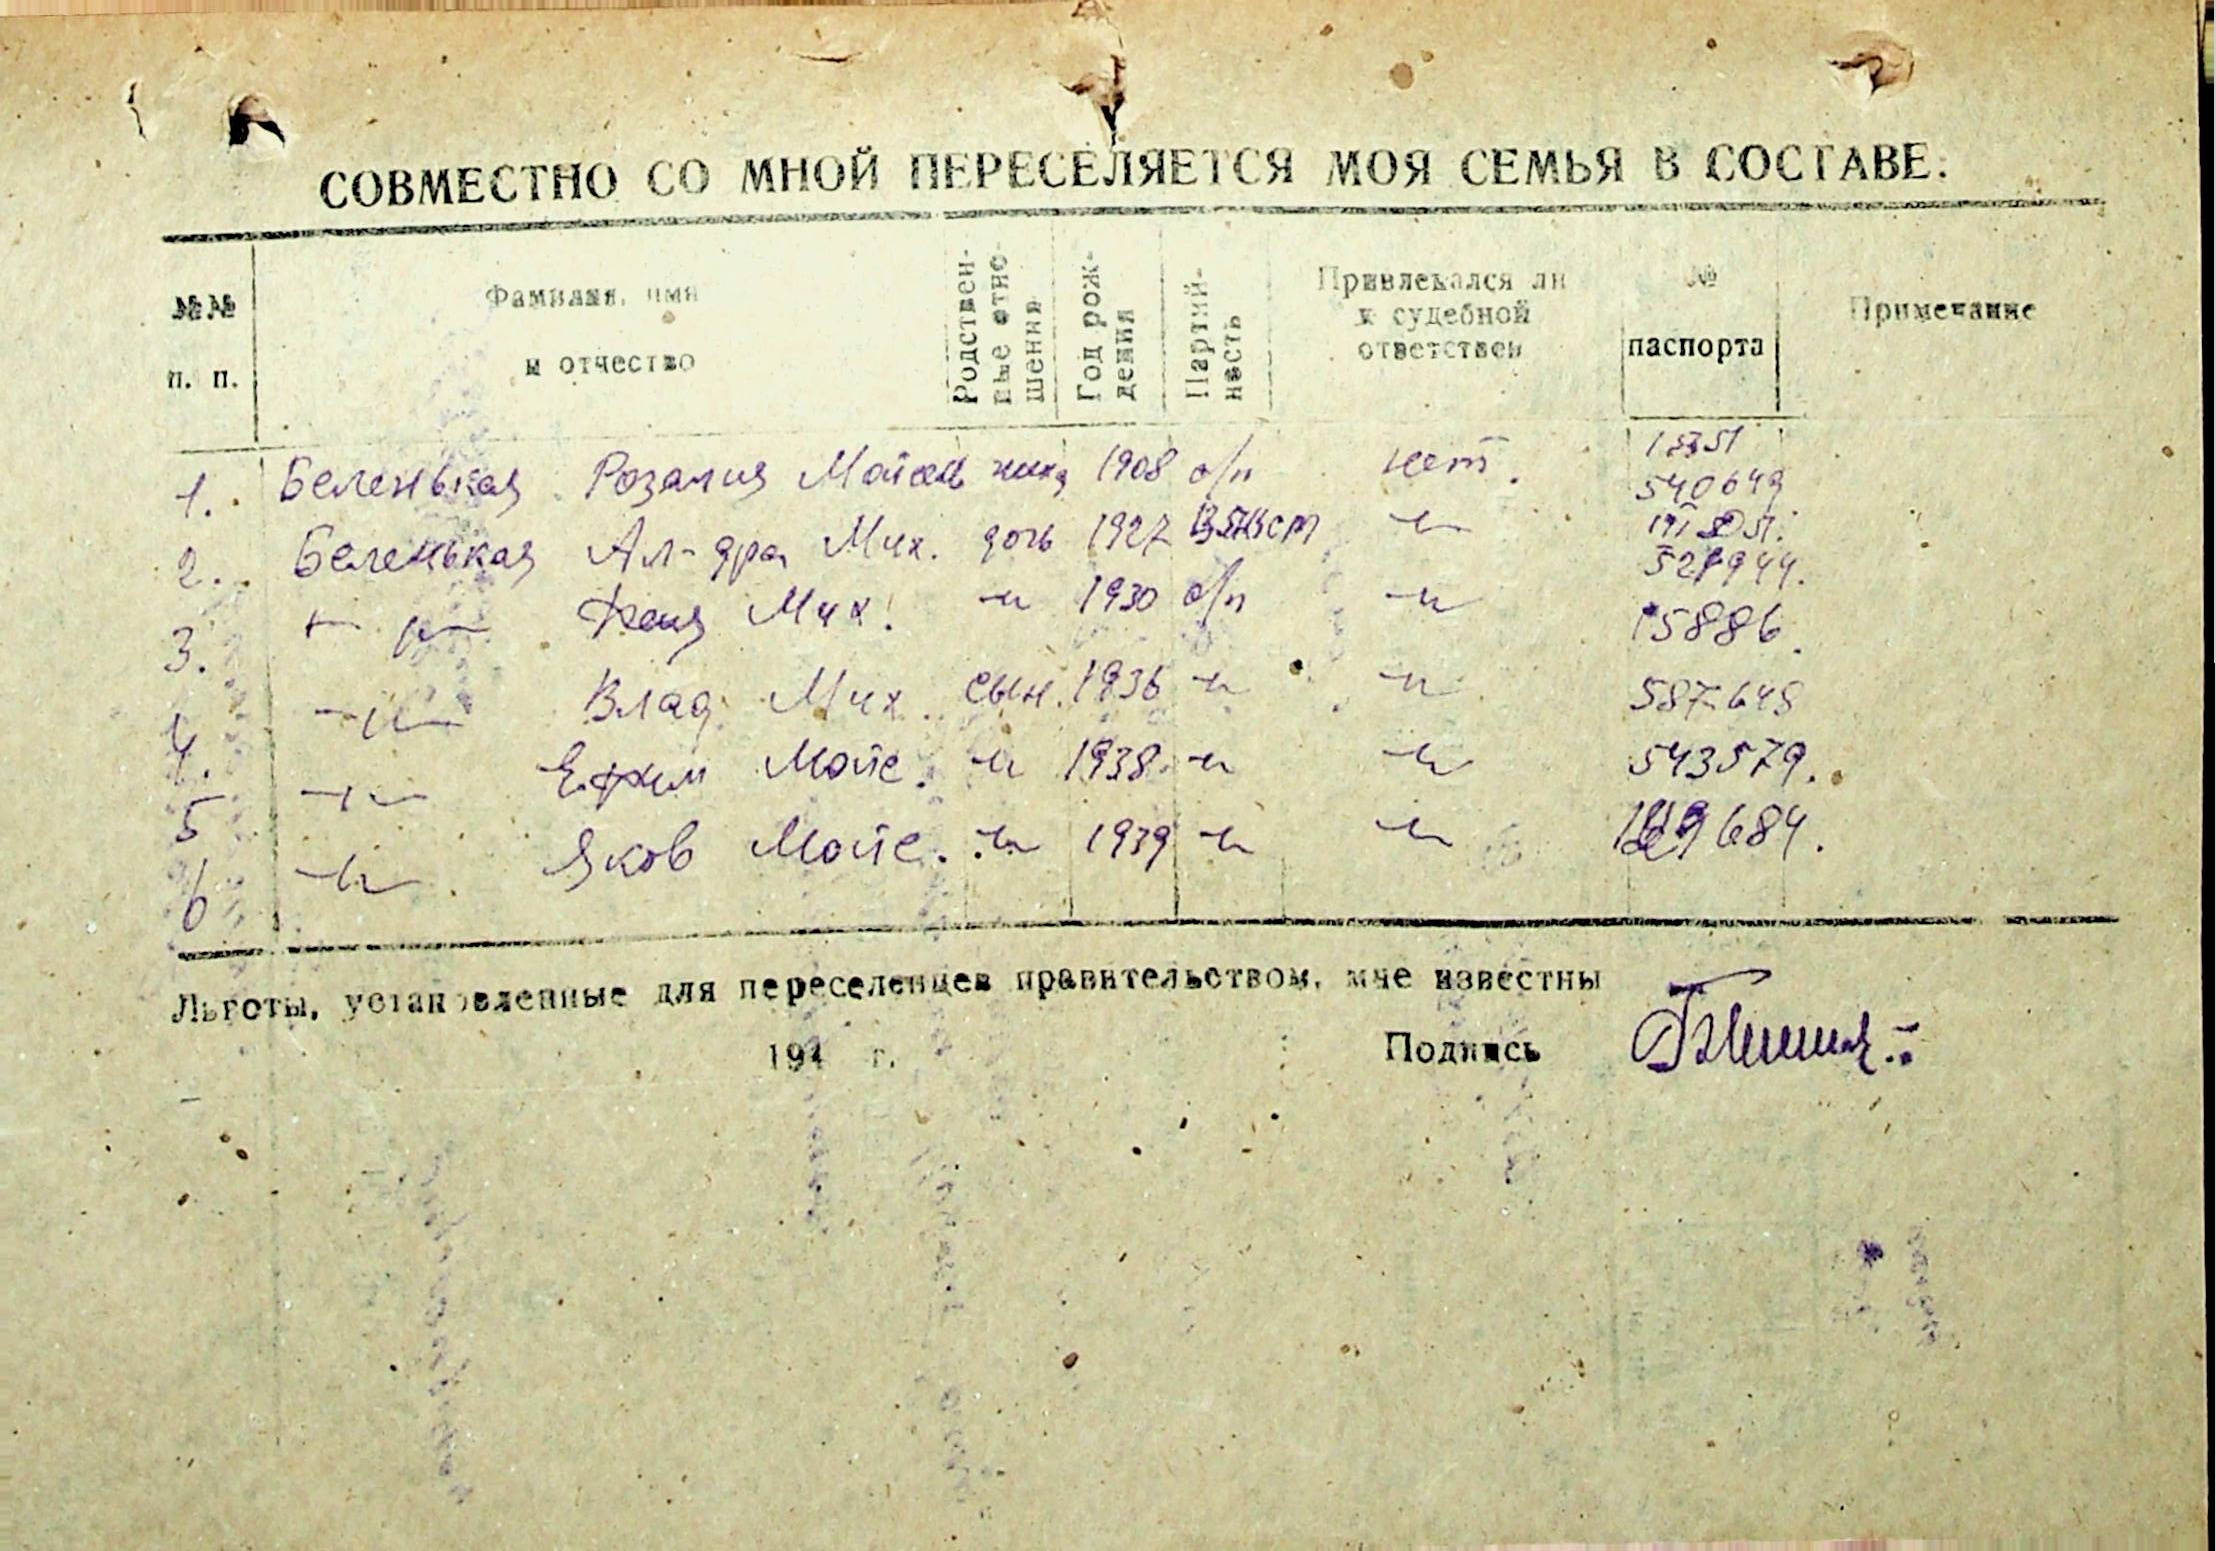 СОВМЕСТНО СО МНОЙ ПЕРЕСЕЛЯЕТСЯ МОЯ СЕМЬЯ В СОСТАВЕ:
№№ п. п. Фамилия, имя и отчество Родственные отношения Год рождения Партийность Привлекался ли к судебной ответствен № паспорта Примечание
1. Беленькая Розалия жена 1908 б/п нет. 540649
2. Беленькая Ал-дра Мих. дочь 1927 -"-
3. -"- Мих. -"- 1930 б/п -"- 15886.
4. -"- Влад. Мих. сын. 1936 -"- -"- 587648
5 -"- Ефим Мойс. -"- 1938 -"- -"- 543579.
6 -"- Яков Мойс. -"- 1939 -"- -"-
Льготы, установленные для переселенцев правительством, мне известны
194 г. Подпись